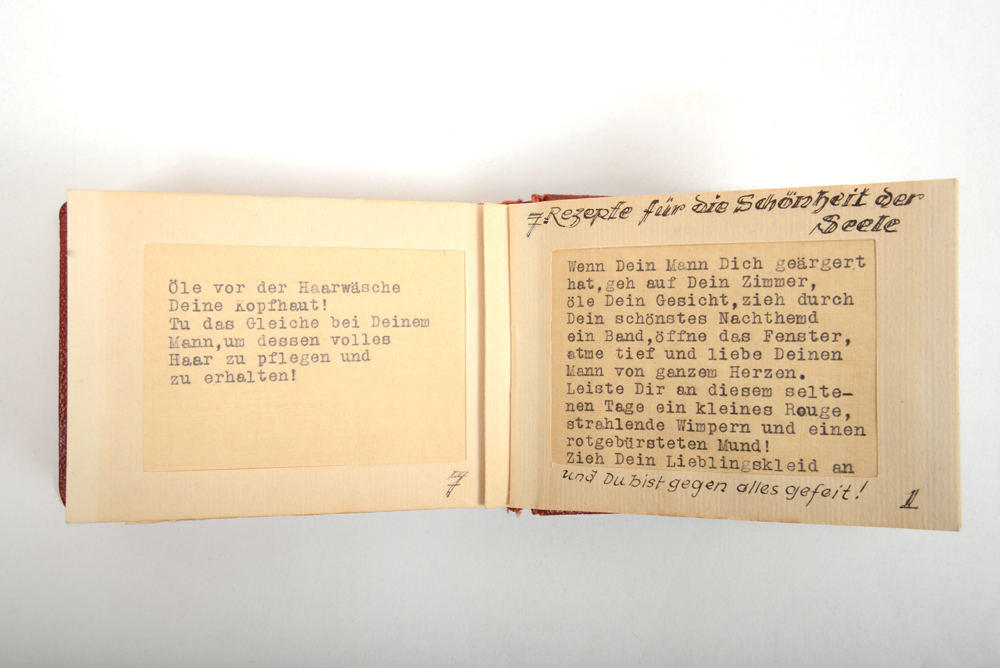 Öle vor der Haarwäsche
Deine Kopfhaut!
Tu das Gleiche bei Deinem
Mann,um dessen volles
Haar zu pflegen und
zu erhalten!
7
7 Rezepte für die Schönheit der
Seele
Wenn Dein Mann Dich geärgert
hat,geh auf Dein Zimmer,
öle Dein Gesicht,zieh durch
Dein schönstes Nachthemd
ein Band,öffne das Fenster,
atme tief und liebe Deinen
Mann von ganzem Herzen.
Leiste Dir an diesem selte-
nen Tage ein kleines Rouge,
strahlende Wimpern und einen
rotgebürsteten Mund!
Zieh Dein Lieblingskleid an
und Du bist gegen alles gefeit!
1